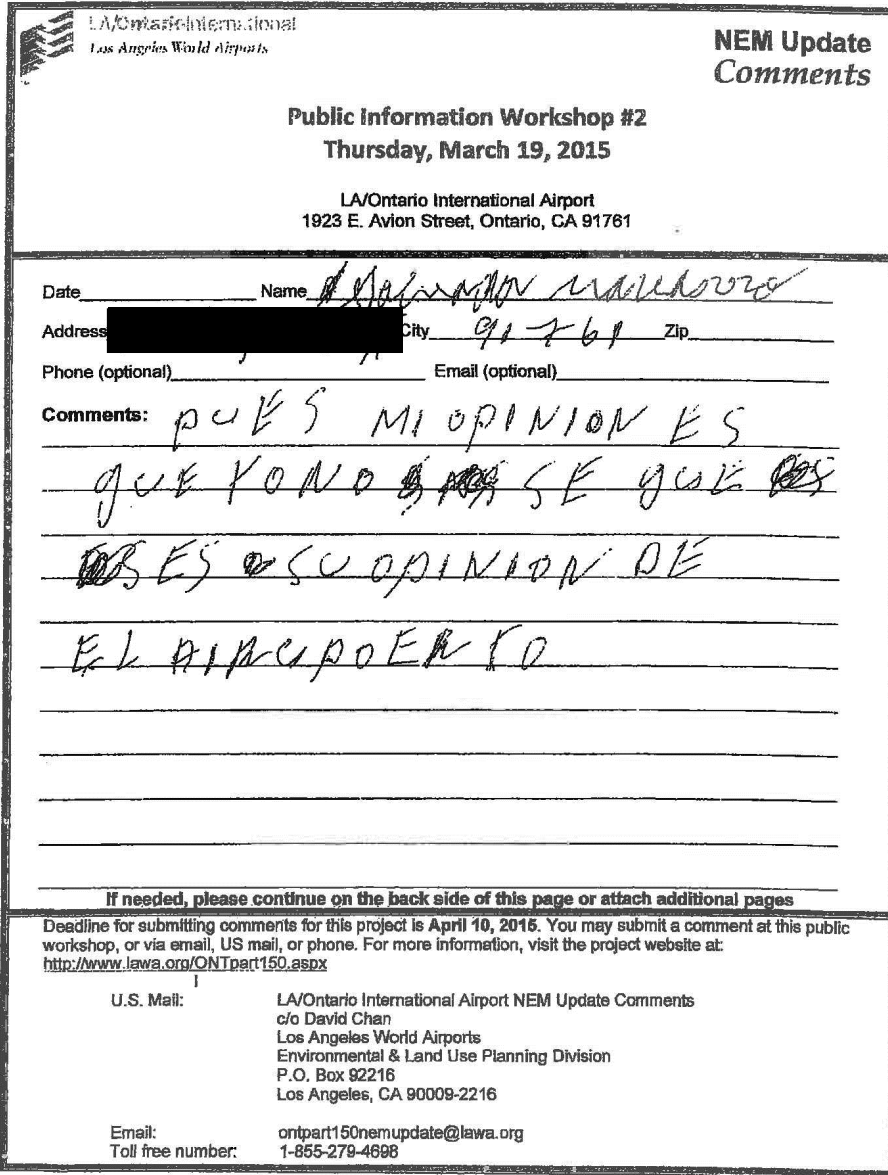 LA/Ontario International
Los Angeles World Airports
NEM Update
Comments
Public Information Workshop #2
Thursday, March 19, 2015
LA/Ontario International Airport
1923 E. Avion Street, Ontario, CA 91761
Date Name
Address City 91761 Zip
Phone (optional) Email (optional)
Comments: PUES MI OPINION ES
QUE YO NO SE QUE
ES SU OPINION DE
EL AIRUPOERTO
If needed, please continue on the back side of this page or attach additional pages
Deadline for submitting comments for this project is April 10, 2015. You may submit a comment at this public
workshop, or via email, US mail, or phone. For more information, visit the project website at:
http://www.lawa.org/ONTpart150.aspx
U.S. Mail: LA/Ontario International Airport NEM Update Comments
c/o David Chan
Los Angeles World Airports
Environmental & Land Use Planning Division
P.O. Box 92216
Los Angeles, CA 90009-2216
Email: ontpart150nemupdate@lawa.org
Toll free number: 1-855-279-4698